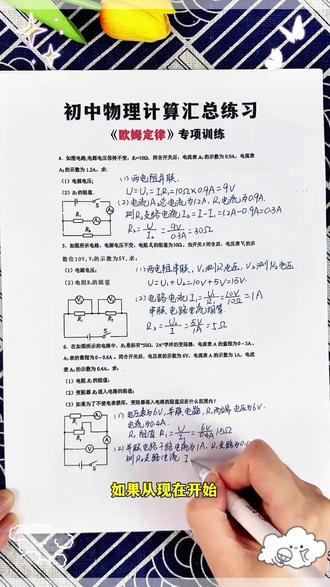 初中物理计算汇总练习
《欧姆定律》专项训练
4. 如图电路,电源电压保持不变, R₁=10Ω, 闭合开关后, 电流表 A₁ 的示数为 0.9A, 电流表
A₂ 的示数为 1.2A, 求:
(1) 电源电压;
(2) R₂ 的阻值.
(1) 两电阻并联.
U=U₁=I₁R₁=10Ω×0.9A=9V
(2) 电流A₂总电流为1.2A, R₁电流为0.9A.
则R₂支路电流I₂=I-I₁=1.2A-0.9A=0.3A
R₂=U/I₂=9V/0.3A=30Ω
S
R₁
A₁
R₂
5. 如图所示电路, 电源电压不变, 电阻 R₁ 的阻值为10Ω, 当开关 S 闭合后, 电压表 V₁ 的示
数位 10V, V₂ 的示数为 5V, 求:
(1) 电源电压;
(2) 电阻 R₂ 的阻值
(1) 两电阻串联, V₁测R₁电压, V₂测R₂电压
U=U₁+U₂=10V+5V=15V.
(2) 电路电流I₁=U₁/R₁=10V/10Ω=1A
串联电路电流相等.
R₂=U₂/I=5V/1A=5Ω
V₁
V₂
R₁
R₂
S
6. 在如图所示的电路中, R₂ 是标有“50Ω, 2A”字样的变阻器, 电流表 A 的量程为 0~3A,
A₁ 表的量程为 0~0.6A, 闭合开关后, 电压表的示数为 6V, 电流表 A 的示数为 1A, 电流
表 A₁ 的示数为 0.4A, 求:
(1) 电阻 R₁ 的阻值;
(2) 变阻器 R₂ 连入电路的阻值;
(3) 如果为了不使电表损坏, 变阻器连入电路的阻值应在什么范围内?
(1) 电压表为6V, 并联电路, R₁两端电压为6V.
电流为0.4A.
R₁阻值 R₁=U/I₁=6V/0.4A=15Ω
(2) 并联电路干路电流为1A, R₁支路为0.4
则R₂支路电流 I
如果从现在开始